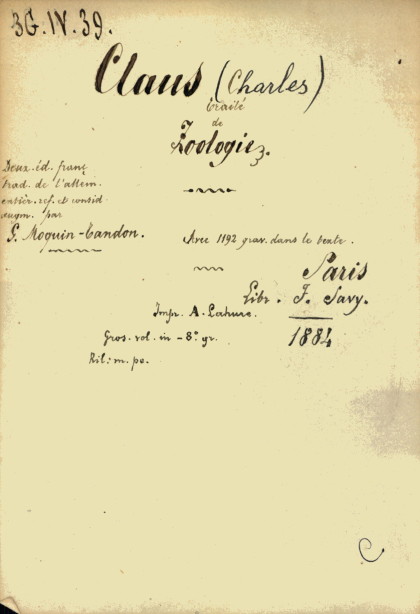 3G.IV.39.
Claus (Charles)
traité
de
Zoologie.
Deux. éd. franç
trad. de l'allem.
entièr. ref. et consid.
augm. par
G. Moquin-Tandon.
Avec 1192 grav. dans le texte.
Paris
Libr. F. Savy.
Impr. A. Lahure.
1884
Gros. vol. in-8º gr.
Ril: m. pe.
C